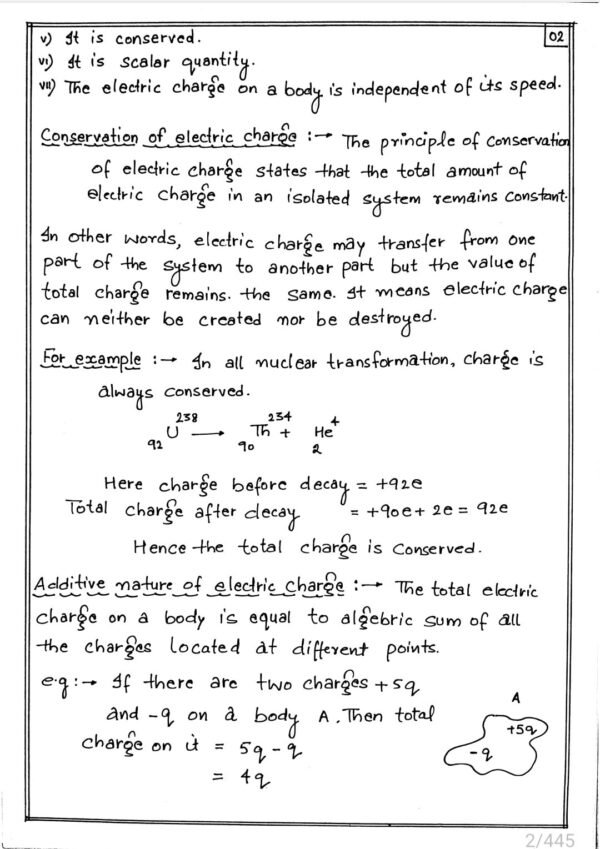 02
v) It is conserved.
vi) It is scalar quantity.
vii) The electric charge on a body is independent of its speed.
Conservation of electric charge :→ The principle of conservation
of electric charge states that the total amount of
electric charge in an isolated system remains constant.
In other words, electric charge may transfer from one
part of the system to another part but the value of
total charge remains. the same. It means electric charge
can neither be created nor be destroyed.
For example :→ In all nuclear transformation, charge is
always conserved.
₉₂U²³⁸ → ₉₀Th²³⁴ + ₂He⁴
Here charge before decay = +92e
Total charge after decay = +90e + 2e = 92e
Hence the total charge is conserved.
Additive nature of electric charge :→ The total electric
charge on a body is equal to algebric sum of all
the charges located at different points.
e.g:→ If there are two charges +5q
and -q on a body A. Then total
charge on it = 5q - q
= 4q
A
+5q
-q
2/445